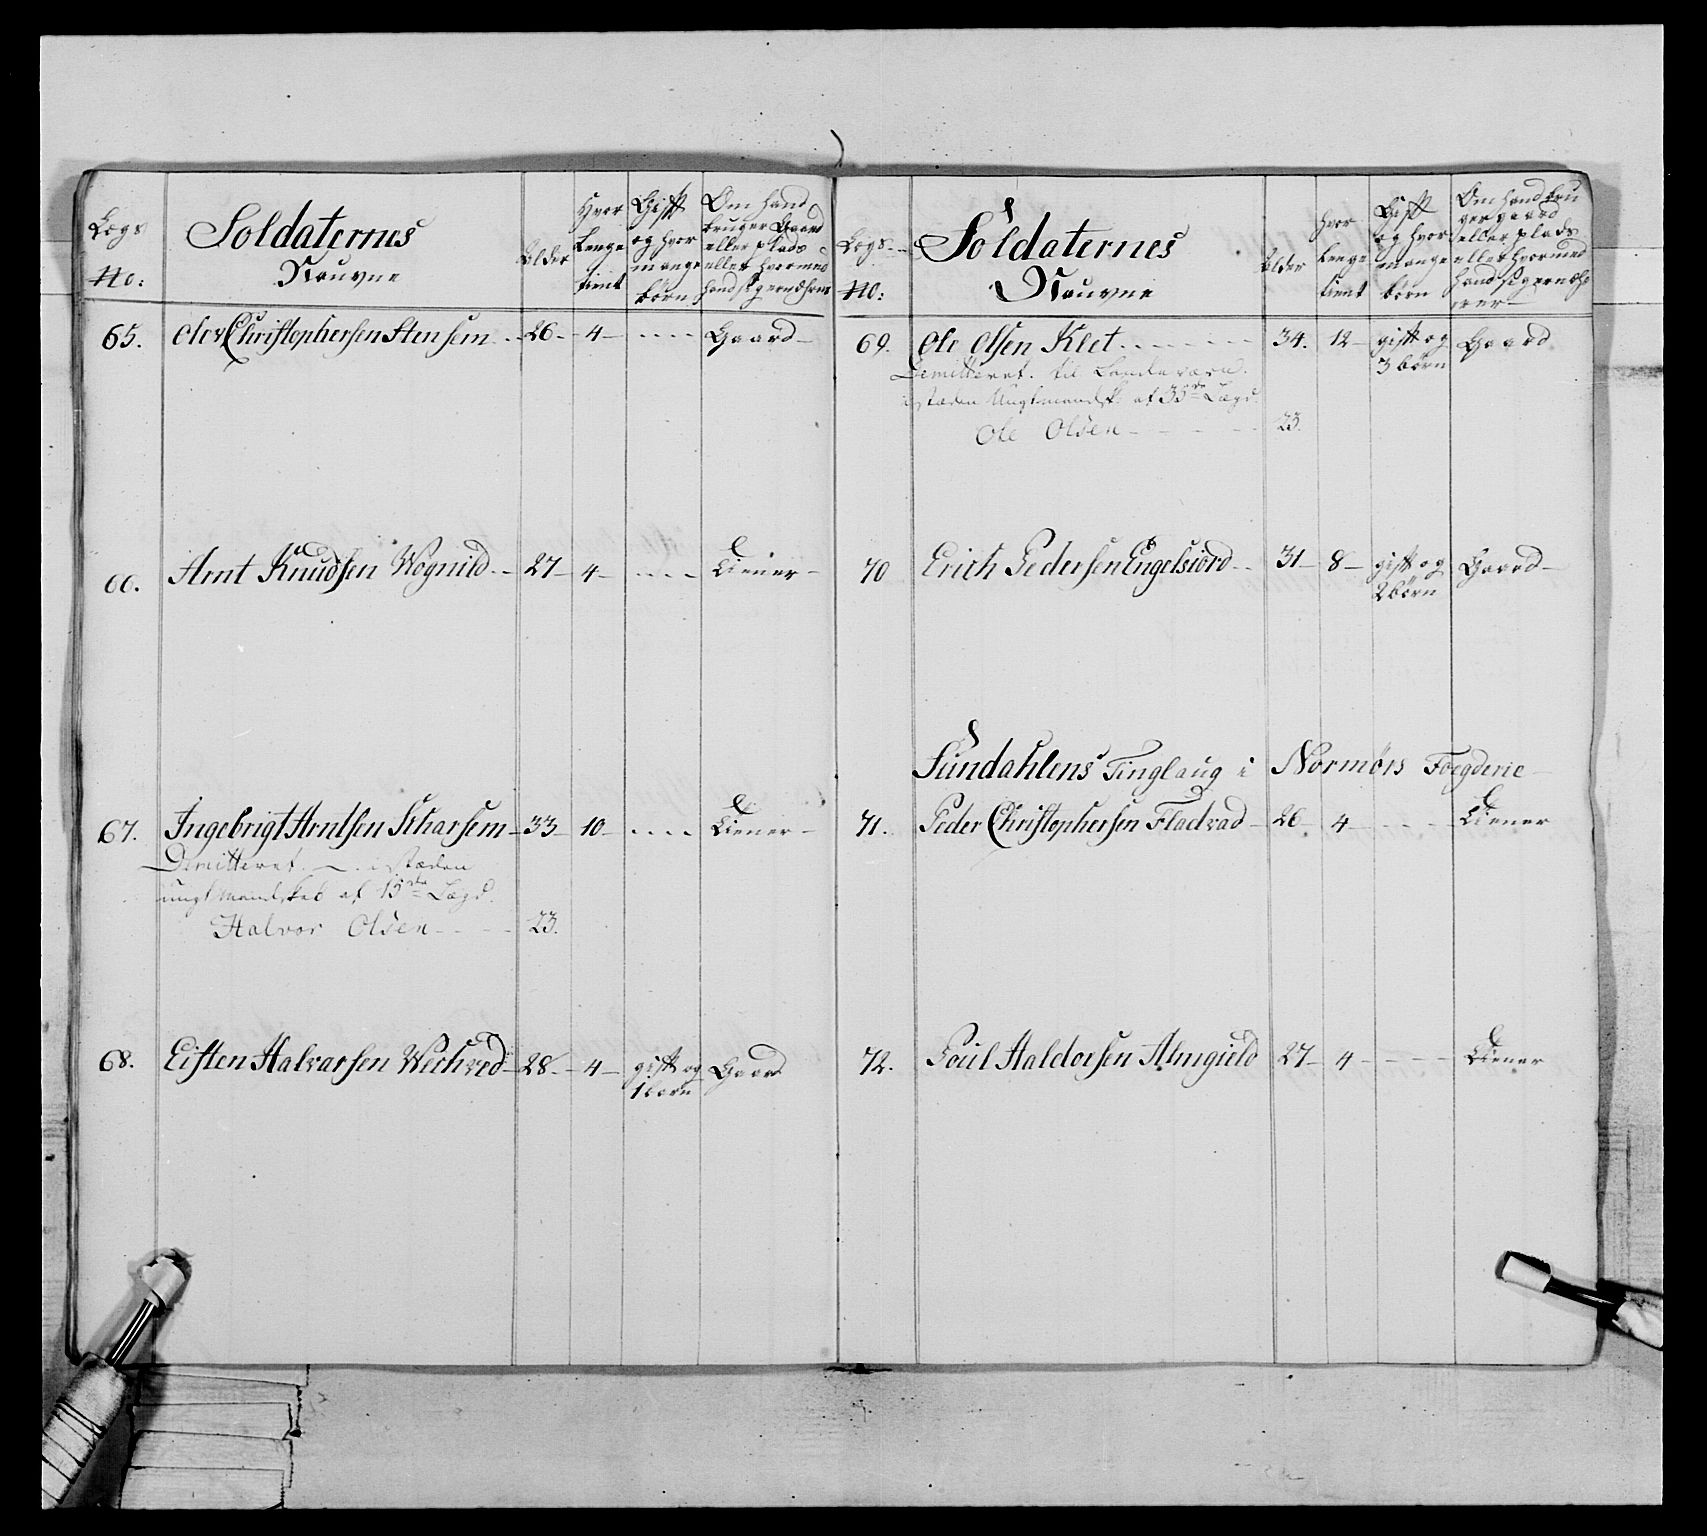 Lægs No:
Soldaternes Nauvne
Alder
Hvor Lenge tient
Gift og hvor mange børn
Om hand bruger Gaard eller plads eller hvormed hand sig ernærer
65. Ole Christophersen Stensem 26 4 Gaard
66. Arnt Knudsen Wognild 27 4 Tiener
67. Ingebrigt Arntsen Scharsem 33 10 Tiener
Dimitteret i stæden
ungt Mandskab af 15de Lægd.
Halvor Olsen 23.
68. Eisten Halvarsen Wechved 28 4 gift og 1 børn Gaard
Lægs No:
Soldaternes Nauvne
Alder
hvor Lenge tient
Gift og hvor mange børn
Om hand bruger gaard eller plads eller hvormed hand sig ernærer
69. Ole Olsen Klet 34. 12 gift og 3 børn Gaard
Demitteret til Landeværn.
istæden Ungt mandsk: af 35de Lægd.
Ole Olsen 23.
70 Erich Pedersen Engelsiord 31 8 gift og 2 børn Gaard
Sundahlens Tinglaug i Normørs Foegderie
71. Peder Christophersen Fladvad 26 4 Tiener
72. Poul Haldorsen Almguld 27 4 Tiener